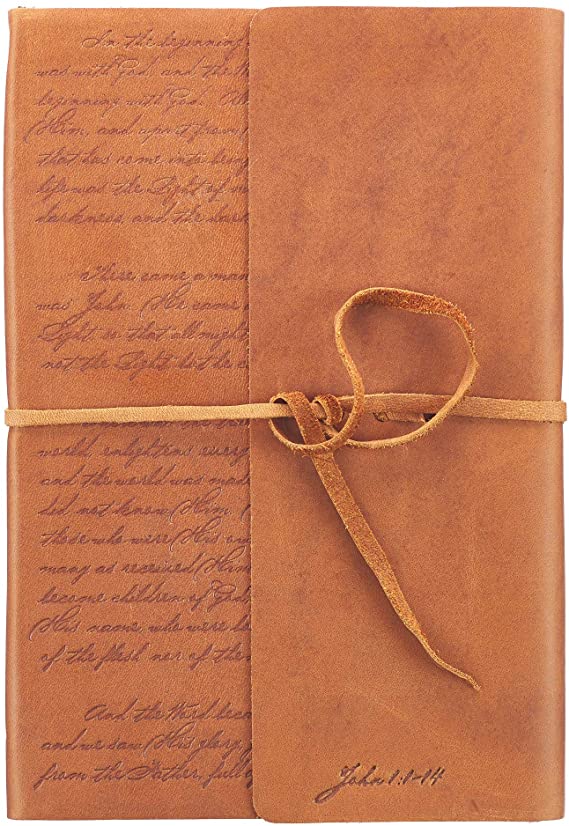 In the beginning
was with God, and the
beginning with God. All
Him, and apart from
that has come into being
life was the Light of
darkness, and the dark
There came a man
was John. He came
Light, so that all might
not the Light but he
world, enlightens every
and the world was made
did not know Him. He
those who were His own
many as received Him
become children of God,
His name, who were
of the flesh nor of the
And the Word beca
and we saw His glory
from the Father, full of
John 1:1-14